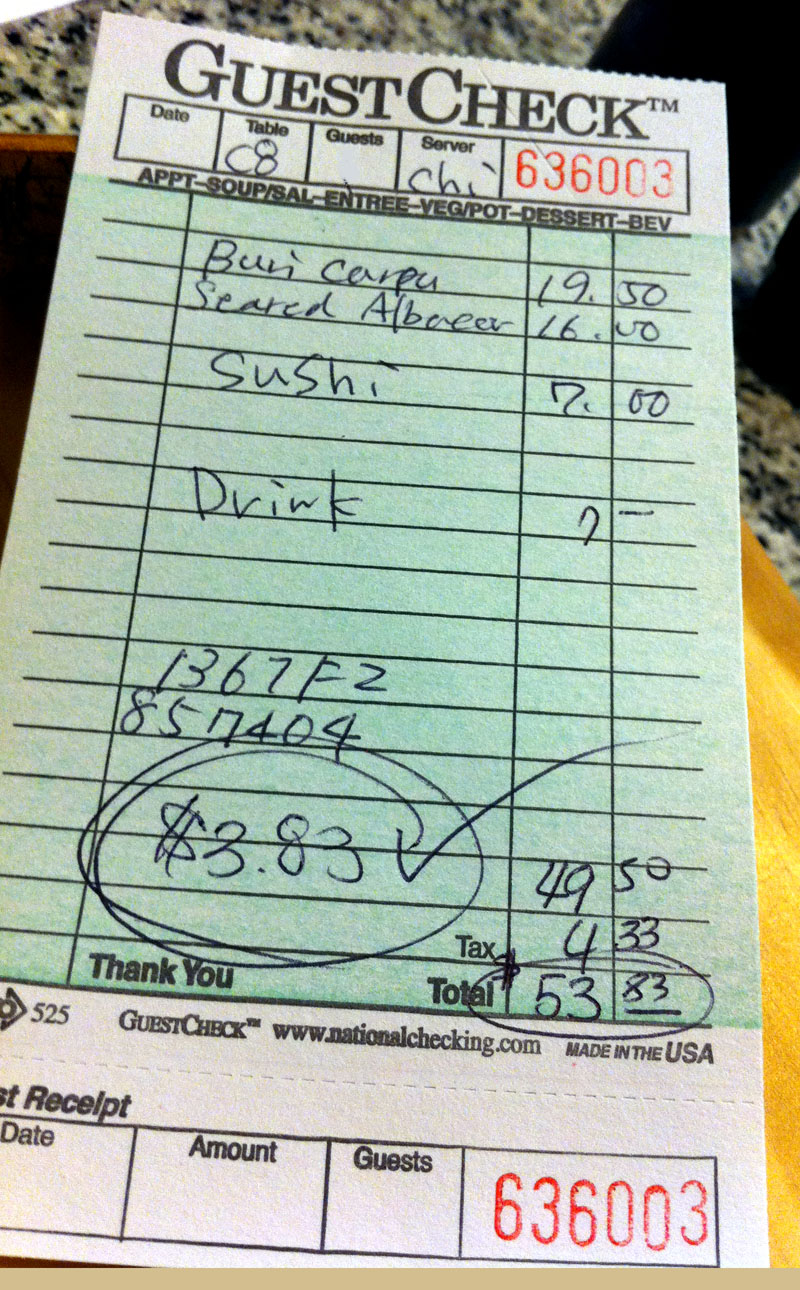 GUESTCHECK™
Date Table Guests Server
C8 Chi 636003
APPT–SOUP/SAL–ENTREE–VEG/POT–DESSERT–BEV
Buri Carpa 19.50
Seared Albacor 16.00
Sushi 7.00
Drink 7 —
1367F2
857404
$3.83
49 50
Tax 4 33
Thank You Total $ 53 83
525 GUESTCHECK™ www.nationalchecking.com MADE IN THE USA
st Receipt
Date Amount Guests
636003